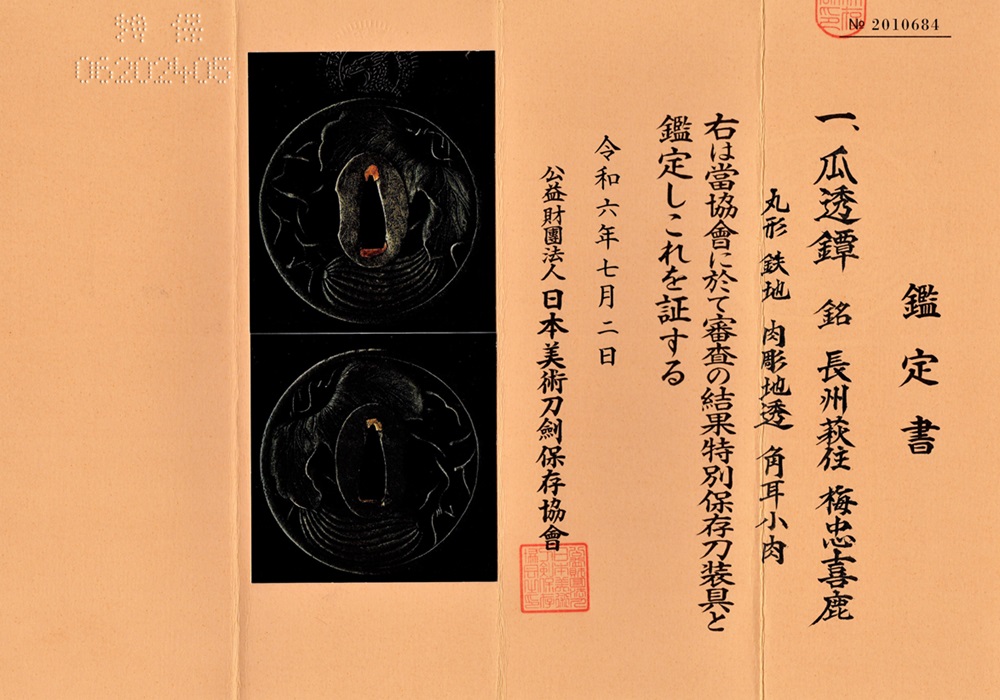 № 2010684
鑑定書
一、瓜透鐔 銘 長州萩住 梅忠喜鹿
丸形 鉄地 肉彫地透 角耳小肉
右は當協會に於て審査の結果特別保存刀装具と
鑑定しこれを証する
令和六年七月二日
公益財團法人 日本美術刀劍保存協會
特保
06202405